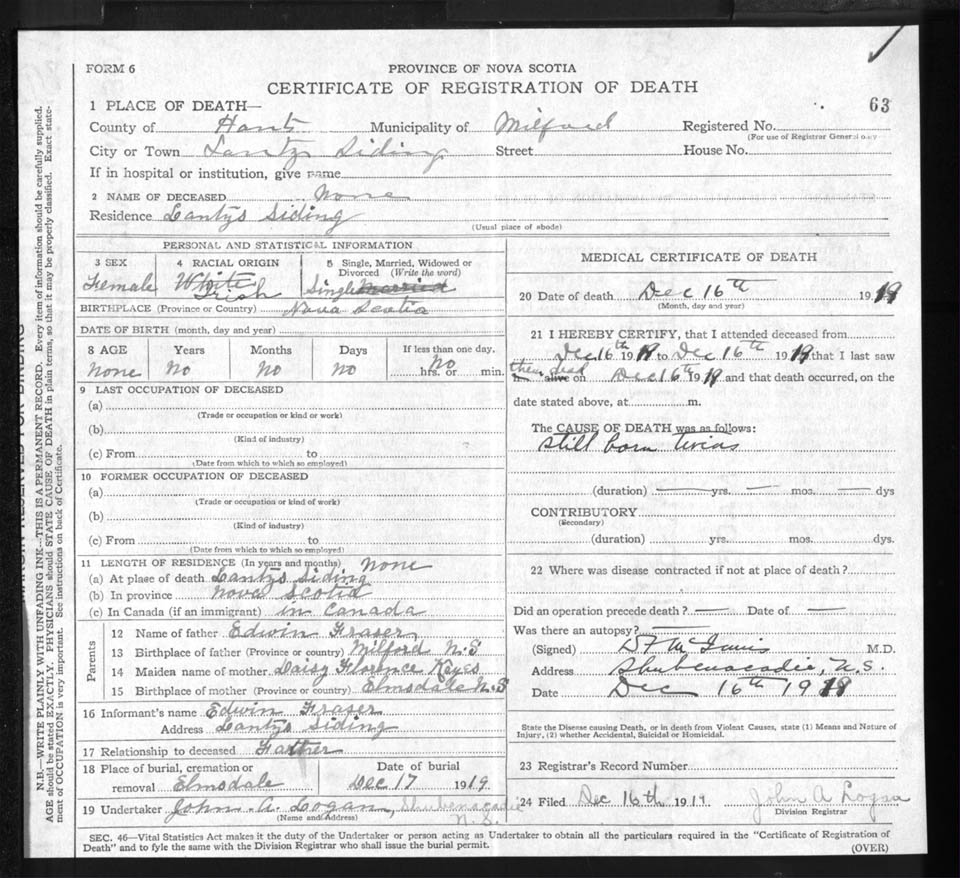 FORM 6
PROVINCE OF NOVA SCOTIA
CERTIFICATE OF REGISTRATION OF DEATH
63
1 PLACE OF DEATH—
County of Hants Municipality of Milford Registered No.
(For use of Registrar General only
City or Town Lantz Siding Street House No.
If in hospital or institution, give name
2 NAME OF DECEASED None
Residence Lantzs Siding
(Usual place of abode)
PERSONAL AND STATISTICAL INFORMATION
3 SEX
Female
4 RACIAL ORIGIN
White
Irish
5 Single, Married, Widowed or
Divorced (Write the word)
Single Married
BIRTHPLACE (Province or Country) Nova Scotia
DATE OF BIRTH (month, day and year)
8 AGE Years Months Days If less than one day,
None No No No No
hrs. or min.
9 LAST OCCUPATION OF DECEASED
(a)
(Trade or occupation or kind or work)
(b)
(Kind of industry)
(c) From to
(Date from which to which so employed)
10 FORMER OCCUPATION OF DECEASED
(a)
(Trade or occupation or kind of work)
(b)
(Kind of industry)
(c) From to
(Date from which to which so employed)
11 LENGTH OF RESIDENCE (In years and months) None
(a) At place of death Lantzs Siding
(b) In province Nova Scotia
(c) In Canada (if an immigrant) in Canada
Parents
12 Name of father Edwin Fraser
13 Birthplace of father (Province or country) Milford N.S
14 Maiden name of mother Daisy Florence Keyes
15 Birthplace of mother (Province or country) Elmsdale N.S
16 Informant's name Edwin Fraser
Address Lantzs Siding
17 Relationship to deceased Father
18 Place of burial, cremation or
removal Elmsdale
Date of burial
Dec 17 1919
19 Undertaker John A. Logan, Shubenacadie
N.S.
(Name and Address)
MEDICAL CERTIFICATE OF DEATH
20 Date of death Dec 16th 1919
(Month, day and year)
21 I HEREBY CERTIFY, that I attended deceased from
Dec 16th 1919 to Dec 16th 1919 that I last saw
them dead
alive on Dec 16th 1919 and that death occurred, on the
date stated above, at m.
The CAUSE OF DEATH was as follows:
Still born twins
(duration) yrs. mos. dys
CONTRIBUTORY
(Secondary)
(duration) yrs. mos. dys.
22 Where was disease contracted if not at place of death?
Did an operation precede death? Date of
Was there an autopsy?
(Signed) M.D.
Address Shubenacadie, N.S.
Date Dec 16th 1919
State the Disease causing Death, or in death from Violent Causes, state (1) Means and Nature of
Injury, (2) whether Accidental, Suicidal or Homicidal.
23 Registrar's Record Number
24 Filed Dec 16th 1919 John A Logan
Division Registrar
SEC. 46—Vital Statistics Act makes it the duty of the Undertaker or person acting as Undertaker to obtain all the particulars required in the "Certificate of Registration of
Death" and to fyle the same with the Division Registrar who shall issue the burial permit.
(OVER)
MARGIN RESERVED FOR BINDING
N.B.—WRITE PLAINLY WITH UNFADING INK—THIS IS A PERMANENT RECORD. Every item of information should be carefully supplied.
AGE should be stated EXACTLY. PHYSICIANS should STATE CAUSE OF DEATH in plain terms, so that it may be properly classified. Exact state-
ment of OCCUPATION is very important. See instructions on back of Certificate.